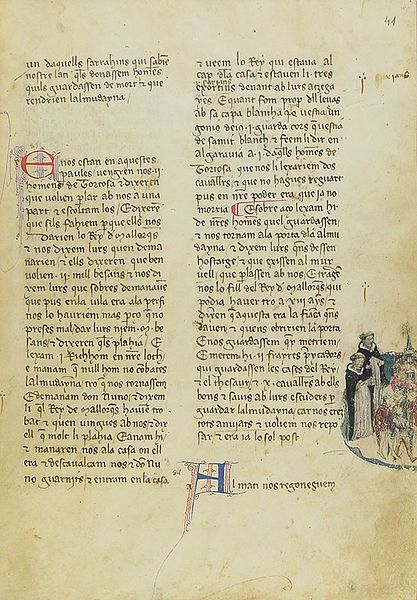 41
un daquells sarrahins qui sabie
nostre lati q̄ls donassem homēs
quils guardassen de mort & que
rendrien lalmudayna
E nos estan en aquestes
paules vengren nos .ii.
homens de Tortosa & dixeren
que volien plar ab nos a una
part & escoltam los / E dixerē
que sils fahiem puys els nos
Darien lo Rey d Mallorq̄s
& nos dixem lurs quen dema
narien / & ells dixeren que ben
volien .ii. mill besans & nos di
xem lurs que sobres demanauē
que pus en la vila era ala perfi
nos lo hauriem mas ptcō q̄ no
preses mal dar lurs niem .m. be
sans & dixeren q̄ls plahia / E
lexam .i. Richhom en nr̄e loch
e manam q̄ null hom no cōbates
lalmudayna tro q̄ nos tornassem
E demanam don Nuno / & dixem
li q̄l Rey de Mallorq̄s hauiē tro
bat & quen vingues ab nos & dix
ell q̄ molt li plahia E anam hi
& manaren nos ala casa on ell
era & descavalcam nos & dō Nu
no guarnits & entram en la casa
& veem lo Rey qui estaua al
cap dla casa & estauen li .tres
exortins denant ab lurs atzega
yes E quant fom prop dll leuas
ab sa capa blancha que vestia un
gonio deio .i. guarda cors q̄ vestia
de samit blanch & fremli dir en
algarauia a .i. daq̄lls homēs de
Tortosa que nos li lexariem dos
cauallrs & que no hagues reguart
pus en nr̄e poder era que ia no
morria E sobre aco lexam hi
de nr̄es homēs quel guardassen
& nos tornam ala porta dla almu
dayna & dixem lurs q̄ns dessen
hostatge & que exissen al mur
vell / que plassen ab nos E tragē
nos lo fill del Rey d Mallorq̄s qui
podia hauer tro a xiii ays &
dixerē q̄ aquesta era la fiāca q̄ns
dauen & quens obririen la porta
E nos guardassem q̄m metriem /
E metem hi .ii. frayres p̄ycadors
qui guardassen les cases del Rey
& el thesaur / & .x. cauallrs ab ells
bons & sauis ab lurs escuders p
guardar lalmudayna / car nos erem
tots anuiats & voliem nos repo
sar & era ia lo sol post
Al mati nos regoneguem